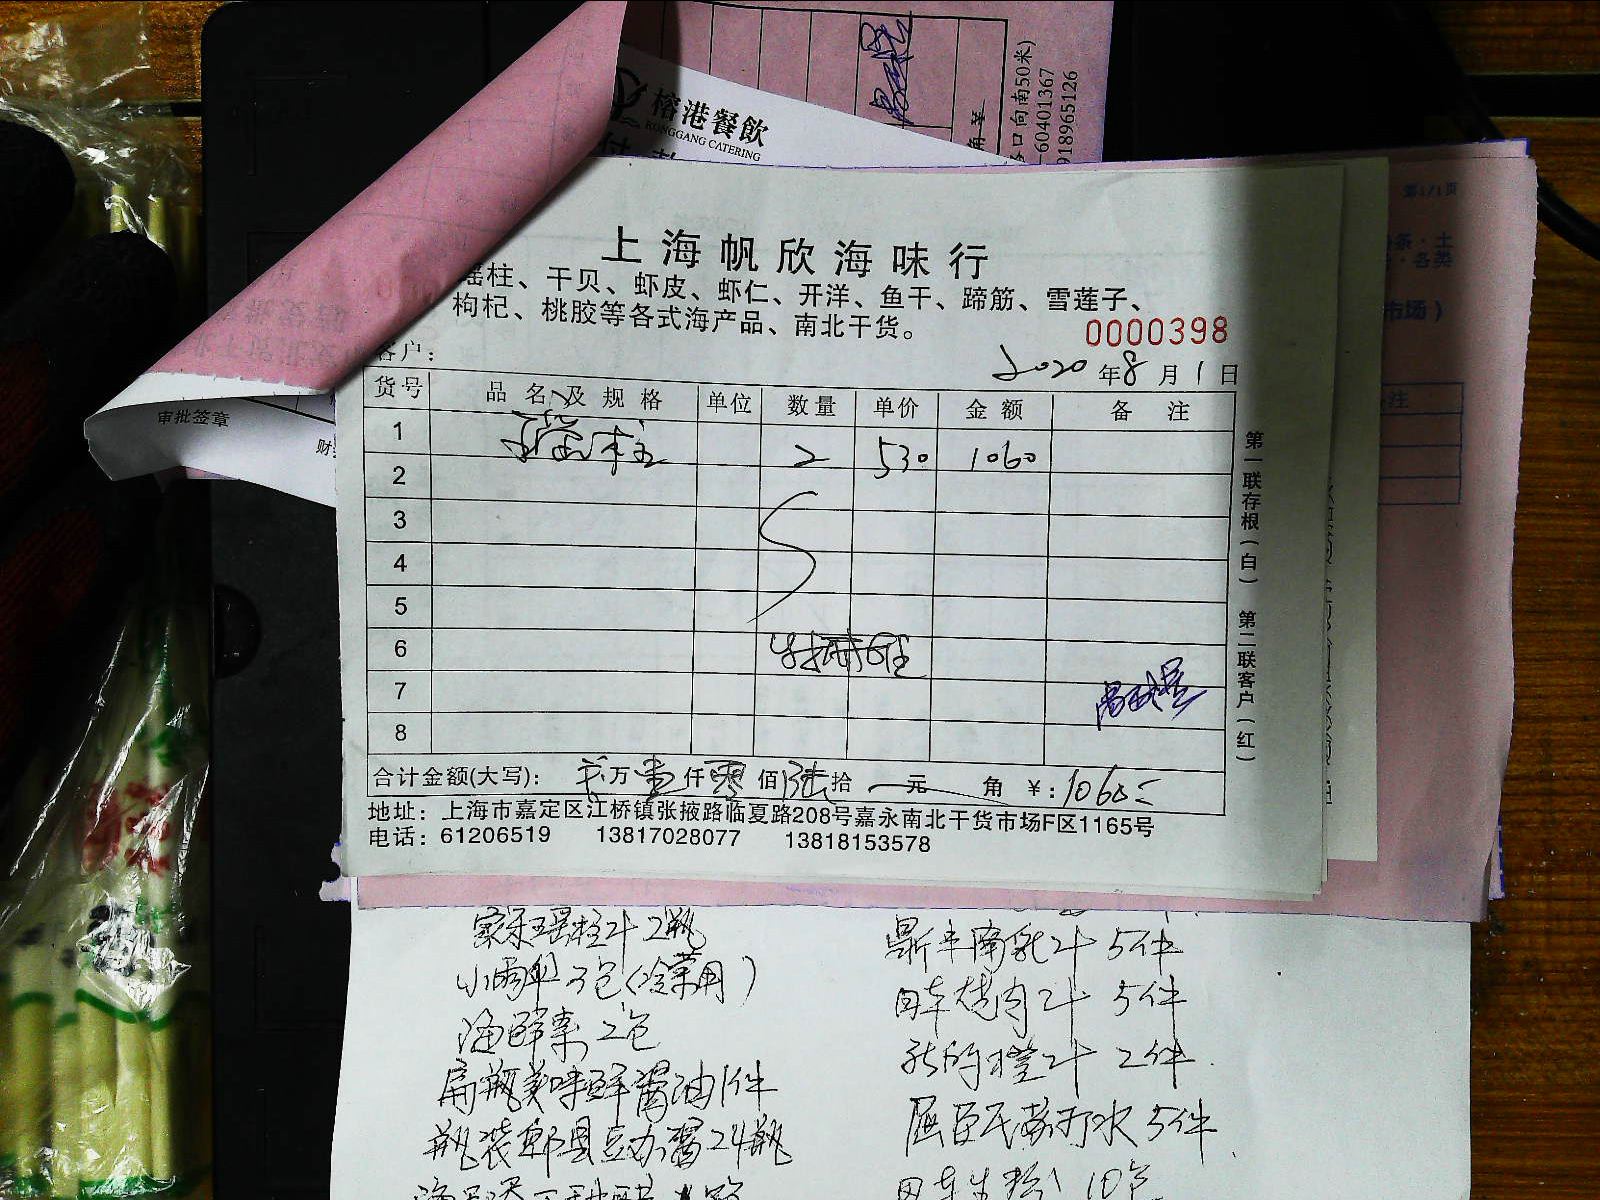 榕港餐飲
RONGGANG CATERING
口向南50米)
-60401367
918965126
第1/1页
市场)
审批签章
财
上海帆欣海味行
瑶柱、干贝、虾皮、虾仁、开洋、鱼干、蹄筋、雪莲子、
枸杞、桃胶等各式海产品、南北干货。
0000398
客户:
2020年8月1日
货号 品名及规格 单位 数量 单价 金额 备注
1 瑶柱 2 530 1060
2
3
4
5
6
7
8
合计金额(大写): 万壹仟零佰陆拾 元 角 ¥:1060
地址:上海市嘉定区江桥镇张掖路临夏路208号嘉永南北干货市场F区1165号
电话:61206519 13817028077 13818153578
第一联存根(白) 第二联客户(红)
家乐瑶柱汁2瓶
小雨伞3包(冷菜用)
海鲜素2包
扁瓶美味鲜酱油1件
瓶装郫县豆办酱24瓶
5件
5件
橙汁 2件
屈臣氏苏打水5件
10包